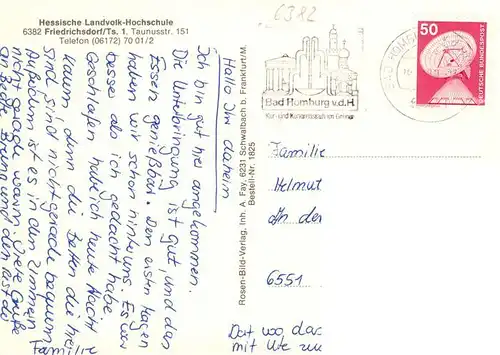 Hessische Landvolk-Hochschule
6382 Friedrichsdorf/Ts. 1, Taunusstr. 151
Telefon (06172) 70 01/2
6382
Bad Homburg v.d.H.
Kur- und Kongress
50
DEUTSCHE BUNDESPOST
BAD HOMBURG
Rosen-Bild-Verlag, Inh. A. Fay, 6231 Schwalbach b. Frankfurt/M.
Bestell-Nr. 1825
Hallo Ihr daheim
Ich bin gut hier angekommen.
Die Unterbringung ist gut, und das
Essen genießbar. Den ersten Tag
haben wir schon hinter uns. Es war
besser als ich gedacht habe.
Geschlafen habe ich heute Nacht
kaum denn die Betten die hier
sind sind nicht gerade bequem
Außerdem ist es in den Zimmern
nicht gerade warm. Viele Grüße
an Bruno und den Rest der
Familie
Familie
Helmut
An der
6551
Dat wo das
mit